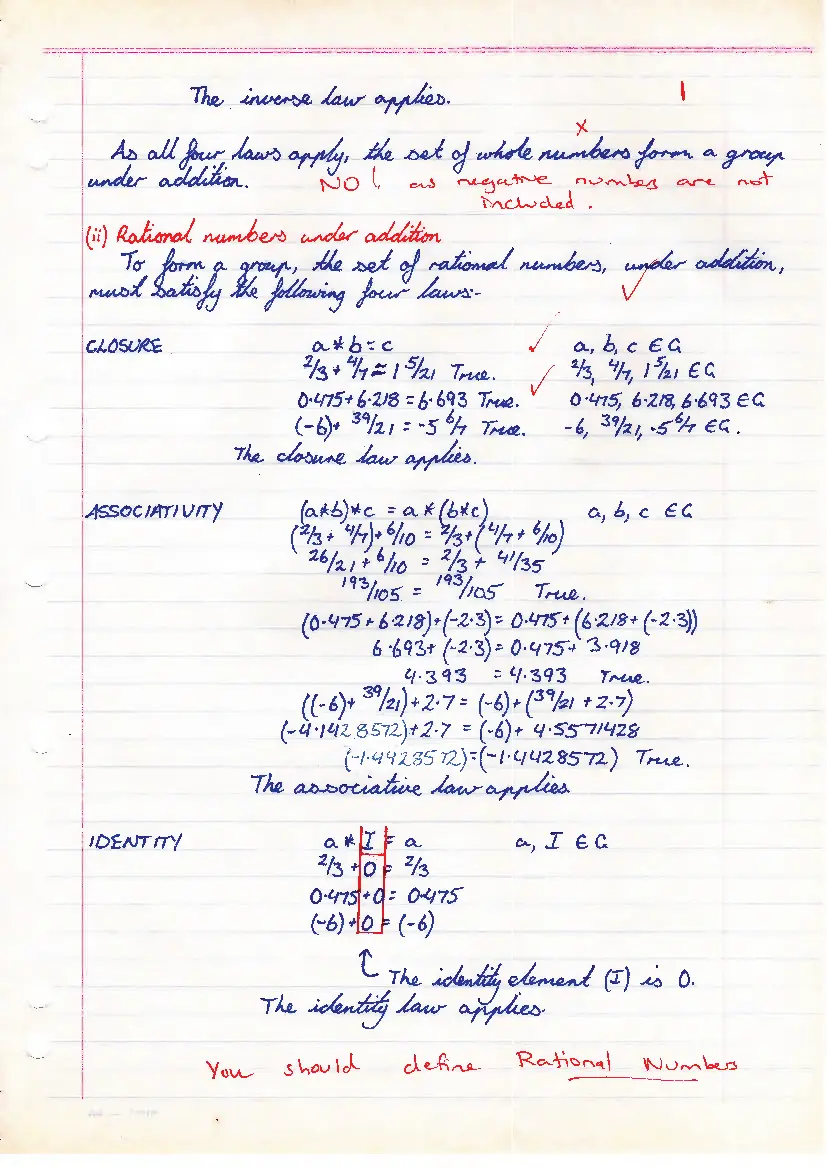 The inverse law applies. 1
x
As all four laws apply, the set of whole numbers form a group
under addition. NO! as negative numbers are not
included.
(ii) Rational numbers under addition
To form a group, the set of rational numbers, under addition,
must satisfy the following four laws:-
CLOSURE a*b=c ✓ a, b, c ∈ G
2/3 + 4/7 = 1 5/21 True. ✓ 2/3, 4/7, 1 5/21 ∈ G
0·475+6·218 = 6·693 True. ✓ 0·475, 6·218, 6·693 ∈ G
(-6)+ 39/21 = -5 6/7 True. -6, 39/21, -5 6/7 ∈ G.
The closure law applies.
ASSOCIATIVITY (a*b)*c = a*(b*c) a, b, c ∈ G
(2/3 + 4/7)+ 6/10 = 2/3+(4/7 + 6/10)
26/21 + 6/10 = 2/3 + 41/35
193/105 = 193/105 True.
(0·475+6·218)+(-2·3) = 0·475+(6·218+(-2·3))
6·693+(-2·3) = 0·475+ 3·918
4·393 = 4·393 True.
((-6)+ 39/21)+2·7 = (-6)+(39/21 +2·7)
(-4·1428572)+2·7 = (-6)+ 4·5571428
(-1·4428572)=(-1·4428572) True.
The associative law applies.
IDENTITY a * I = a a, I ∈ G
2/3 + 0 = 2/3
0·475 + 0 = 0·475
(-6) + 0 = (-6)
The identity element (I) is 0.
The identity law applies.
You should define Rational Numbers